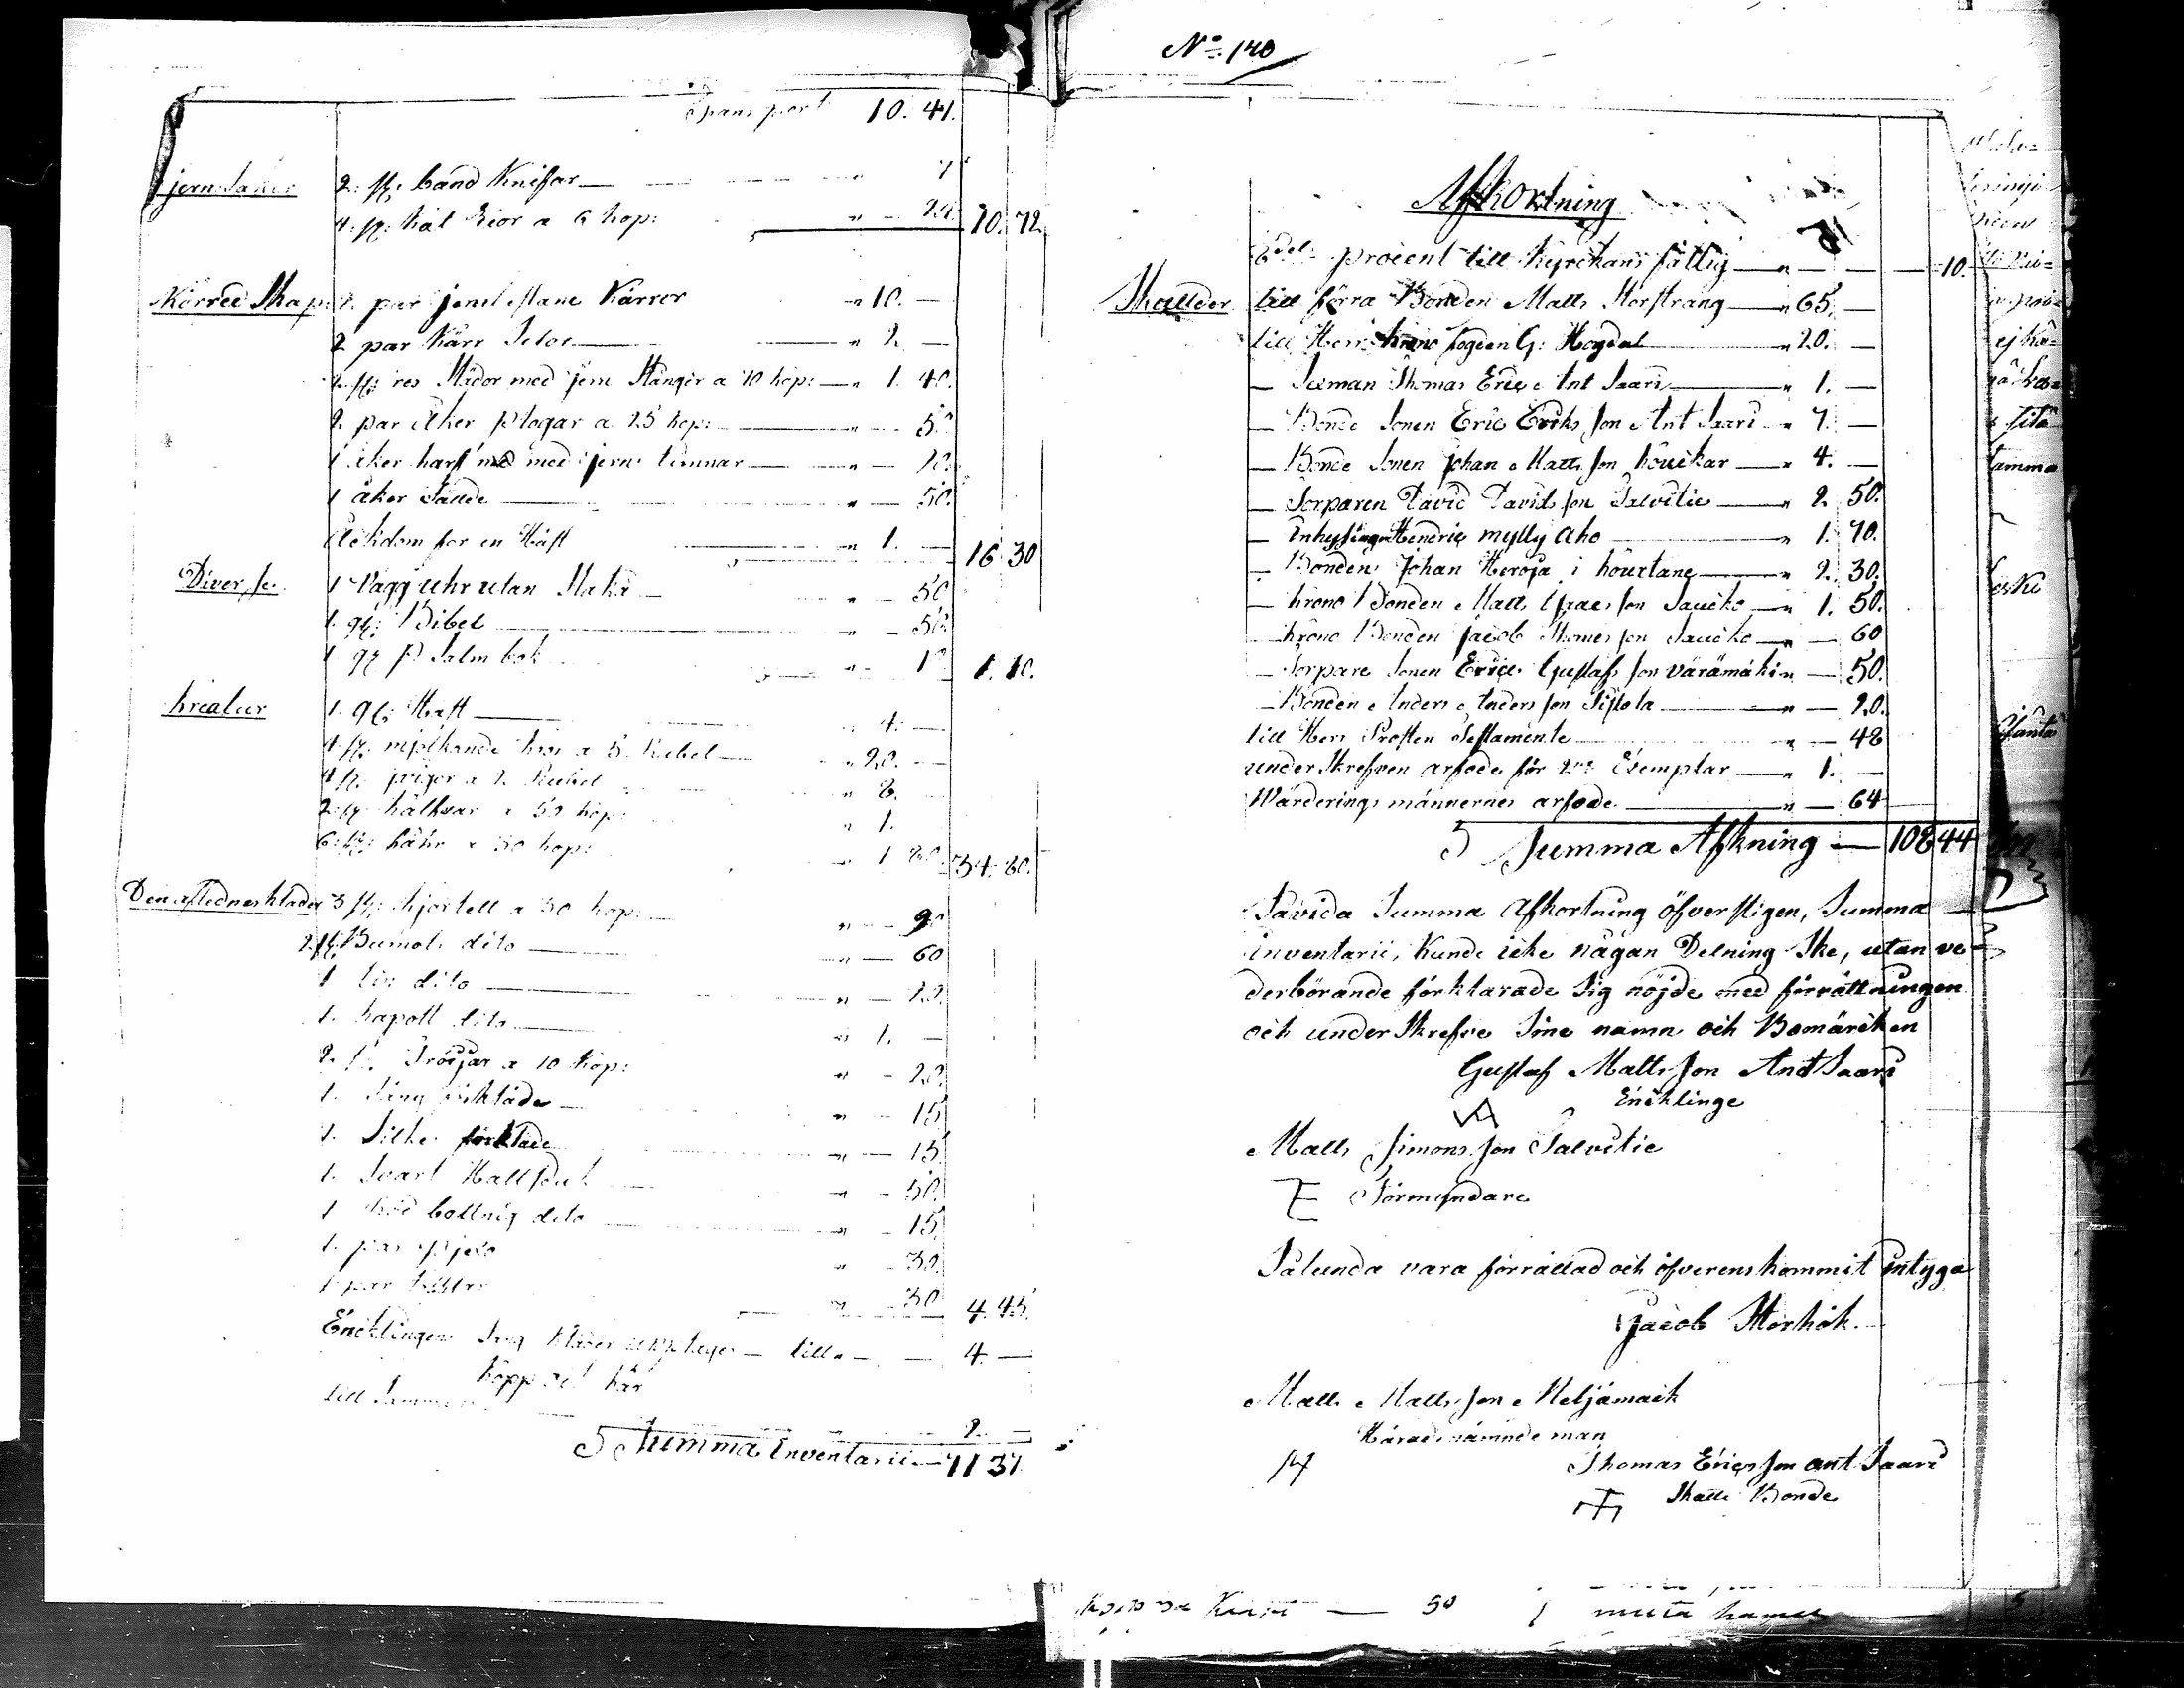 Transport 10. 41.
jern Saker 2: st: band Knifvar — " 7
4: st: hål Lior a 6 kop: " — 24. 10. 72
Körred Skap. 2. par jernel slane Kärror " 10. —
2 par Kärr Selor — " 2 —
2. st: res Slädor med jern Stänger a 70 kop: — " 1. 40.
2. par åker plogar a 25 kop: — " — 50
1 åker harf med jern tinnar — " — 20.
1 åker — " — 50.
Åckdom for en Häst " 1. — 16 30
Diverse. 1 Vägg uhr utan Staka — " — 50
1. st: Bibel — " — 50
1 st P Salm bok " — 10 1. 10.
kreatur 1. st: Häst — 4. —
4. st: mjolkande kor a 5. Rubel — " 20. —
4 st. qvigor a 2. Rubel " 8. —
2: st kalfvar a 50 kop: " 1.
6: st: fåhr a 30 kop: " 1 80. 34. 80.
Den aflednes klader 3 st: kjortell a 30 kop: — " — 90
2. st. Bumols dito — " — 60
1 lin dito — " — 20.
1. kapott dito — " 1. —
2. st. Tröijar a 10 kop: " — 20.
1. " — 15
1. Silke förkläde " — 15
1. Svart Halsduk " — 50.
1 Röd bottnig dito — " — 15
1. par " — 30.
1 par " — 30 4. 45.
Encklingens Sing kläder upptages — till " — 4. —
till 2. —
Summa Inventarii — 71 37.
No 140
Afkortning
procent till Kyrckans fattig — " — — 10.
Skullder till förra Bonden Matts Storstrang — " 65. —
till Herr krono fogden G: Hogdal — " 20. —
— Sexman Thomas Eric Ant Saari — " 1. —
— Bonde Sonen Eric Ericks son Ant Saari " 7. —
— Bonde Sonen Johan Matts son hôuckar — " 4. —
— Torparen David Davids son Salvetie — " 2 50.
— Inhysingen Hendric mylly aho — " 1. 70.
— Bonden Johan Heroja i hôuxtane — " 2. 30.
— krono Bonden Matts Isacs son Saucko — " 1. 50.
— krono Bonden Jacob Thomes son Saucko — " — 60
— Torpare Sonen Eric Gustafs son värämäki " — 50.
— Bonden Anders Anders son Sippola — " — 20.
till Herr Prosten Testamente — " — 48
under Skrefven arfode för 2ne Exemplar — " 1. —
Wärderings männernes arfode — " — 64
Summa Afkning — 108 44
Såvida Summa Afkortning öfverstigen, Summa
inventarii, Kunde icke någan Delning Ske, utan ve-
derbörande förklarade Sig nöjde med förrättningen
och under Skrefve Sine namn och Bomärcken
Gustaf Matts son Ant Saari
Encklinge
Matts Simons son Salvetie
Förmyndare
Sålunda vara förrättad och öfverenskommit intyga
Jacob Storhök.
Matts Matts son Neljämäck
Härads nämnde man
Thomas Erics son ant Saari
Skatte Bonde
50 muta